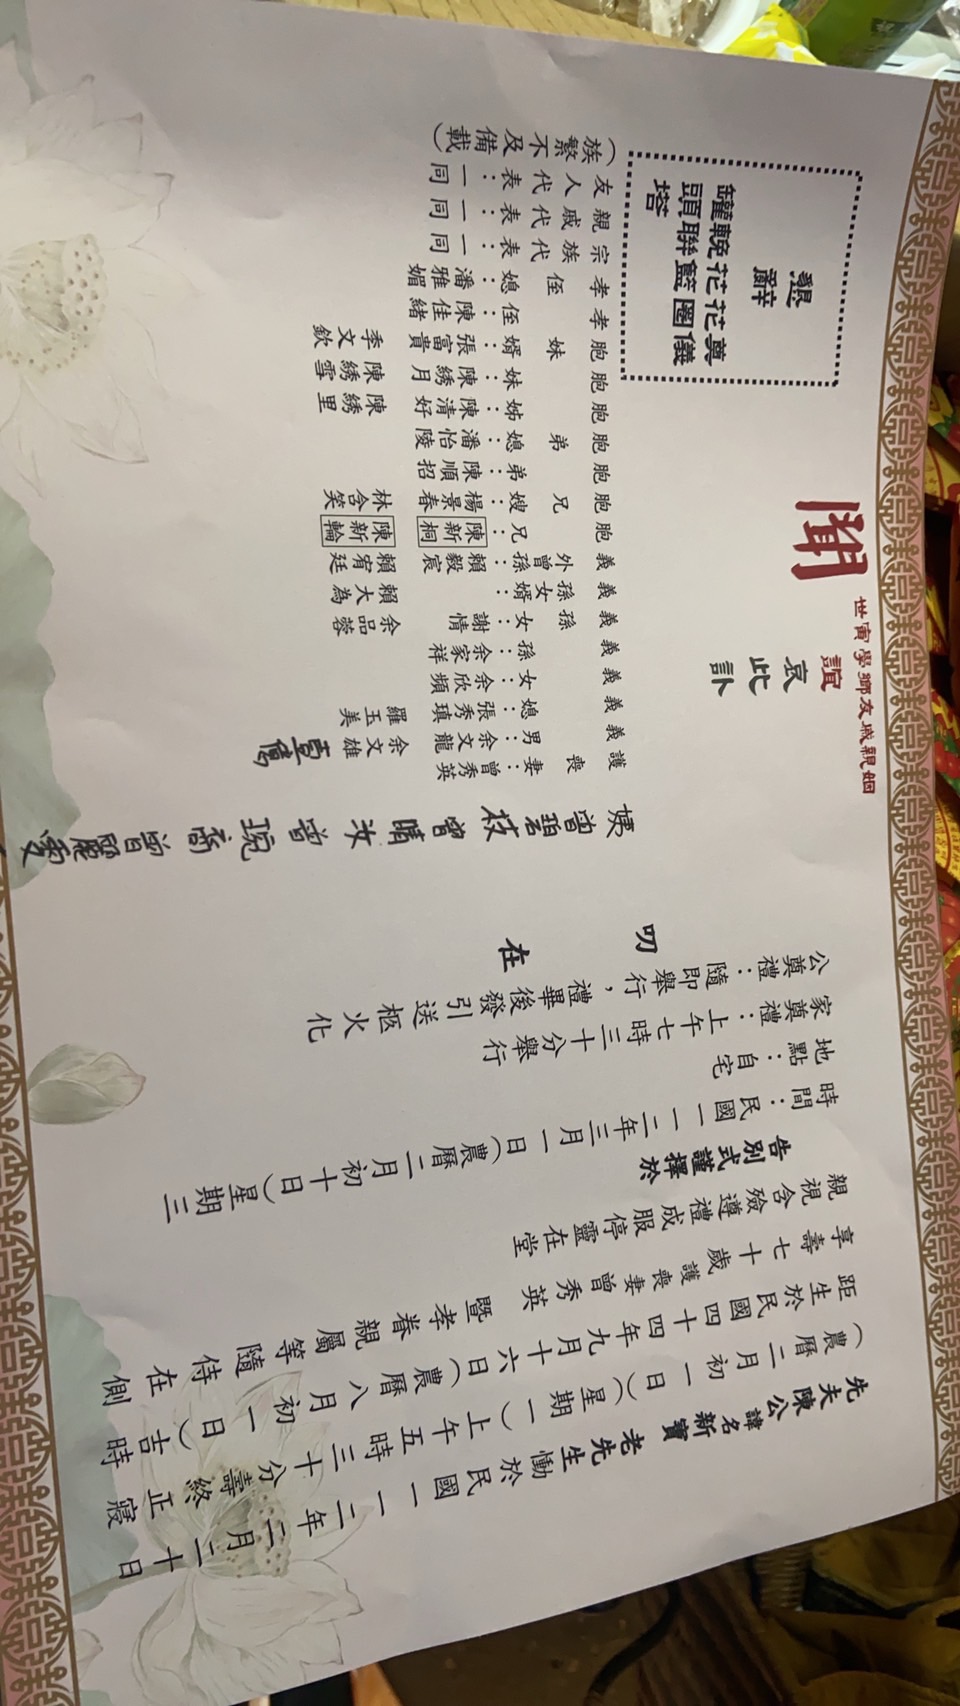 先夫陳公諱名新寶老先生慟於民國一一二年二月二十日
(農曆二月初一日)(星期一)上午五時三十分壽終正寢
距生於民國四十四年九月十六日(農曆八月初一日)吉時
享壽七十歲護喪妻曾秀英暨孝眷親屬等隨侍在側
親視含殮遵禮成服停靈在堂
告別式謹擇於
時間：民國一一二年三月一日(農曆二月初十日)星期三
地點：自宅
家奠禮：上午七時三十分舉行
公奠禮：隨即舉行，禮畢後發引送柩火化
叨在
世寅學鄉友戚親姻
誼
哀此訃
聞
姨曾碧枝 曾晴汝 曾琬喬 曾麗雯
護喪妻：曾秀英
義男：余文龍 余文雄
義媳：張秀瑱 羅玉美
義女：余欣頻
義孫：余家祥
義孫女：謝情 余品蓉
義孫女婿：賴大為
義外曾孫：賴毅宸 賴宥廷
胞兄：陳新桐 陳新輪
胞兄嫂：楊景春 林含笑
胞弟：陳順招
胞弟媳：潘怡陵
胞姊：陳清好 陳綉里
胞妹：陳綉月 陳綉雪
胞妹婿：張富貴 季文欽
孝侄：陳佳緒
孝侄媳：潘雅媚
宗族代表：一同
親戚代表：一同
友人代表：一同
(族繁不及備載)
懇辭
奠儀
花圈
花籃
輓聯
罐頭塔